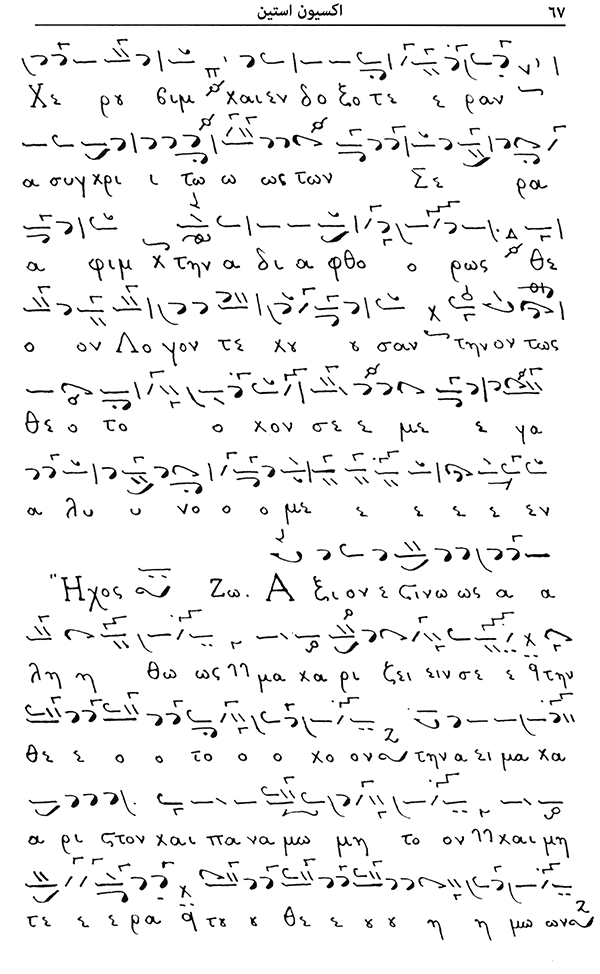 اكسيون استين ٦٧
Χε ρȣ βιμ ϗ αι εν δο ξο τε ε ραν
α συγ κρι ι τω ω ως των Σε ρα
α φιμ τ την α δι α φθο ο ρως θε
ο ον Λο γον τε κȣ ȣ σαν την ον τως
θε ο το ο κον σε ε με ε γα
α λυ υ νο ο ο με ε ε ε ε εν
Ἦχος Ζω. Α ξι ον ε ϛιν ω ως α α
λη η θω ως μα κα ρι ζει ειν σε ε την
θε ε ο ο το ο ο κο ον την α ει μα κα
α ρι ϛτον και πα να μω μη το ον και μη
τε ε ε ρα τȣ ȣ θε ε ȣ ȣ η η μω ων